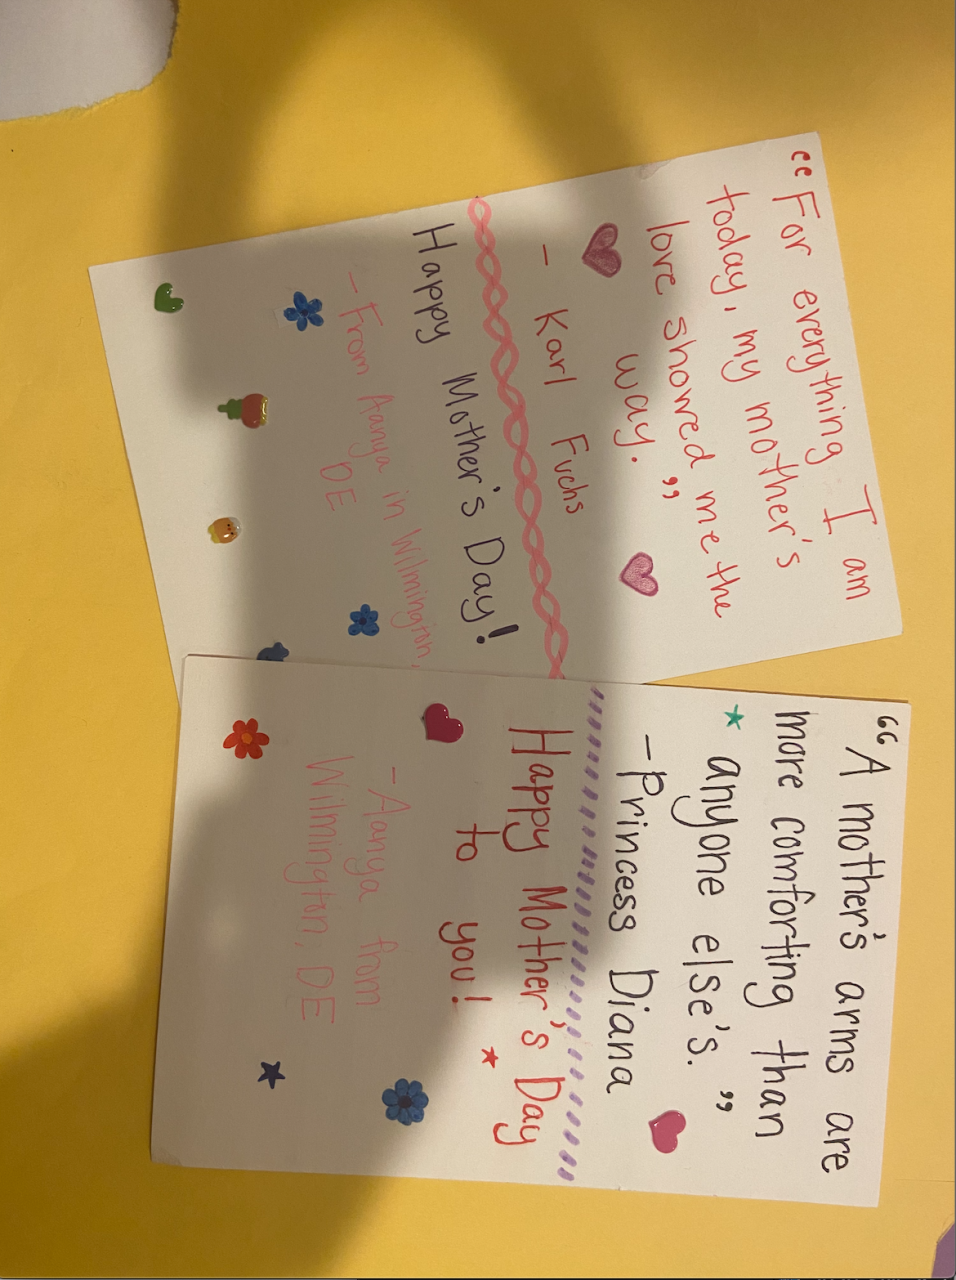 “For everything I am
today, my mother's
love showed me the
way.”
- Karl Fuchs
Happy Mother's Day!
- From Aanya in Wilmington,
DE
“A mother's arms are
more comforting than
anyone else's.”
-Princess Diana
Happy Mother's Day
to you!
-Aanya from
Wilmington, DE